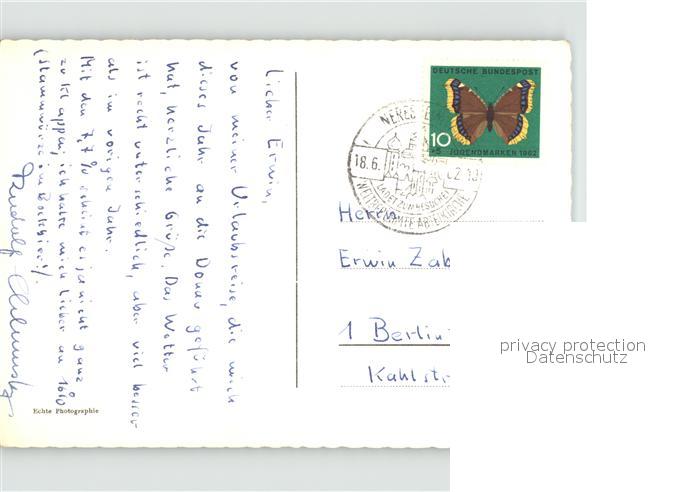 Lieber Erwin,
von meiner Urlaubsreise, die mich
dieses Jahr an die Donau geführt
hat, herzliche Grüße. Das Wetter
ist recht unterschiedlich, aber viel besser
als im vorigen Jahr.
Mit den 7,7% scheint es ja nicht ganz
zu klappen, ich halte mich lieber an 16%
(Stammwürze im Bockbier!).
Rudolf
Echte Photographie
DEUTSCHE BUNDESPOST
10
+5 JUGENDMARKEN 1962
18.6.
LADET ZUM BESUCHE
WELTBERÜHMTE ABTEIKIRCHE
Herrn
Erwin Zab
1 Berlin
Kahlstr
privacy protection
Datenschutz